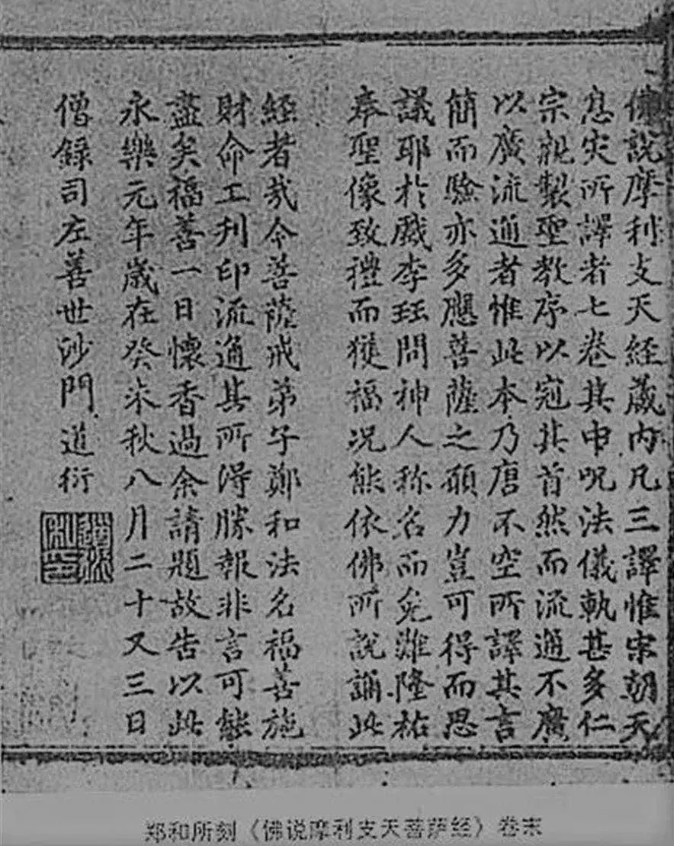 佛說摩利支天經藏内凡三譯惟宋朝天
息灾所譯者七卷其中呪法儀軌甚多仁
宗親製聖教序以冠其首然而流通不廣
以廣流通者惟此本乃唐不空所譯其言
簡而驗亦多應菩薩之願力豈可得而思
議耶於戲李珏問神人称名而免難隆祐
奉聖像致禮而獲福况能依佛所說誦此
經者㢤今菩薩戒弟子鄭和法名福善施
財命工刋印流通其所得勝報非言可能
盡矣福善一日懷香過余請題故告以此
永樂元年歲在癸未秋八月二十又三日
僧録司左善世沙門道衍
郑和所刻《佛说摩利支天菩萨经》卷末